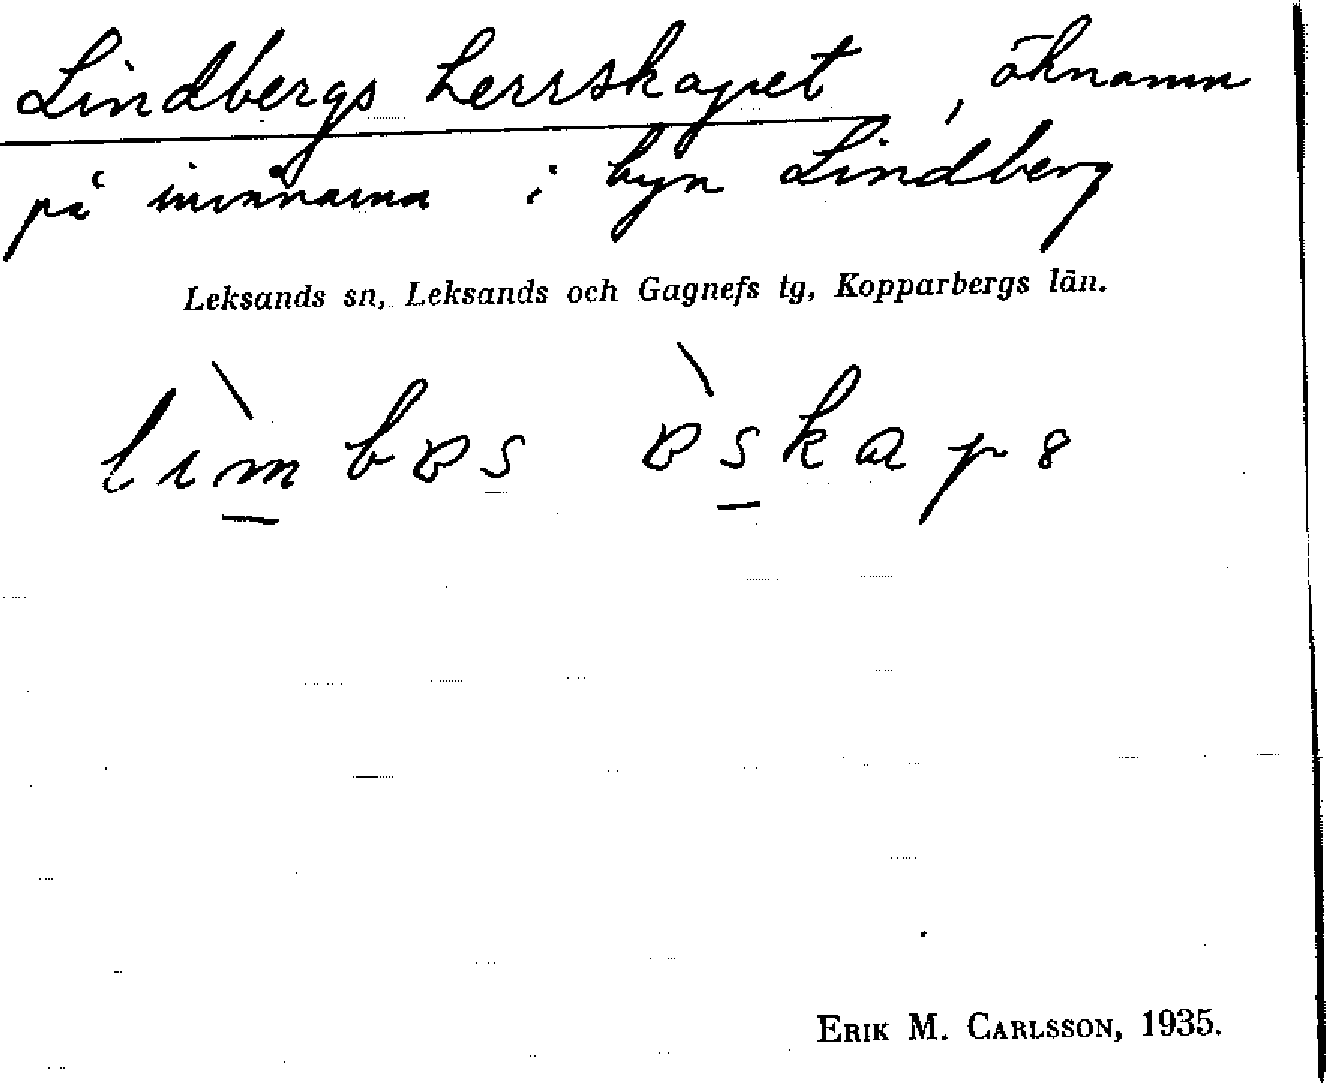 Lindbergs herrskapet, öknamn
på invånarna i byn Lindberg
Leksands sn, Leksands och Gagnefs tg, Kopparbergs län.
ERIK M. CARLSSON, 1935.